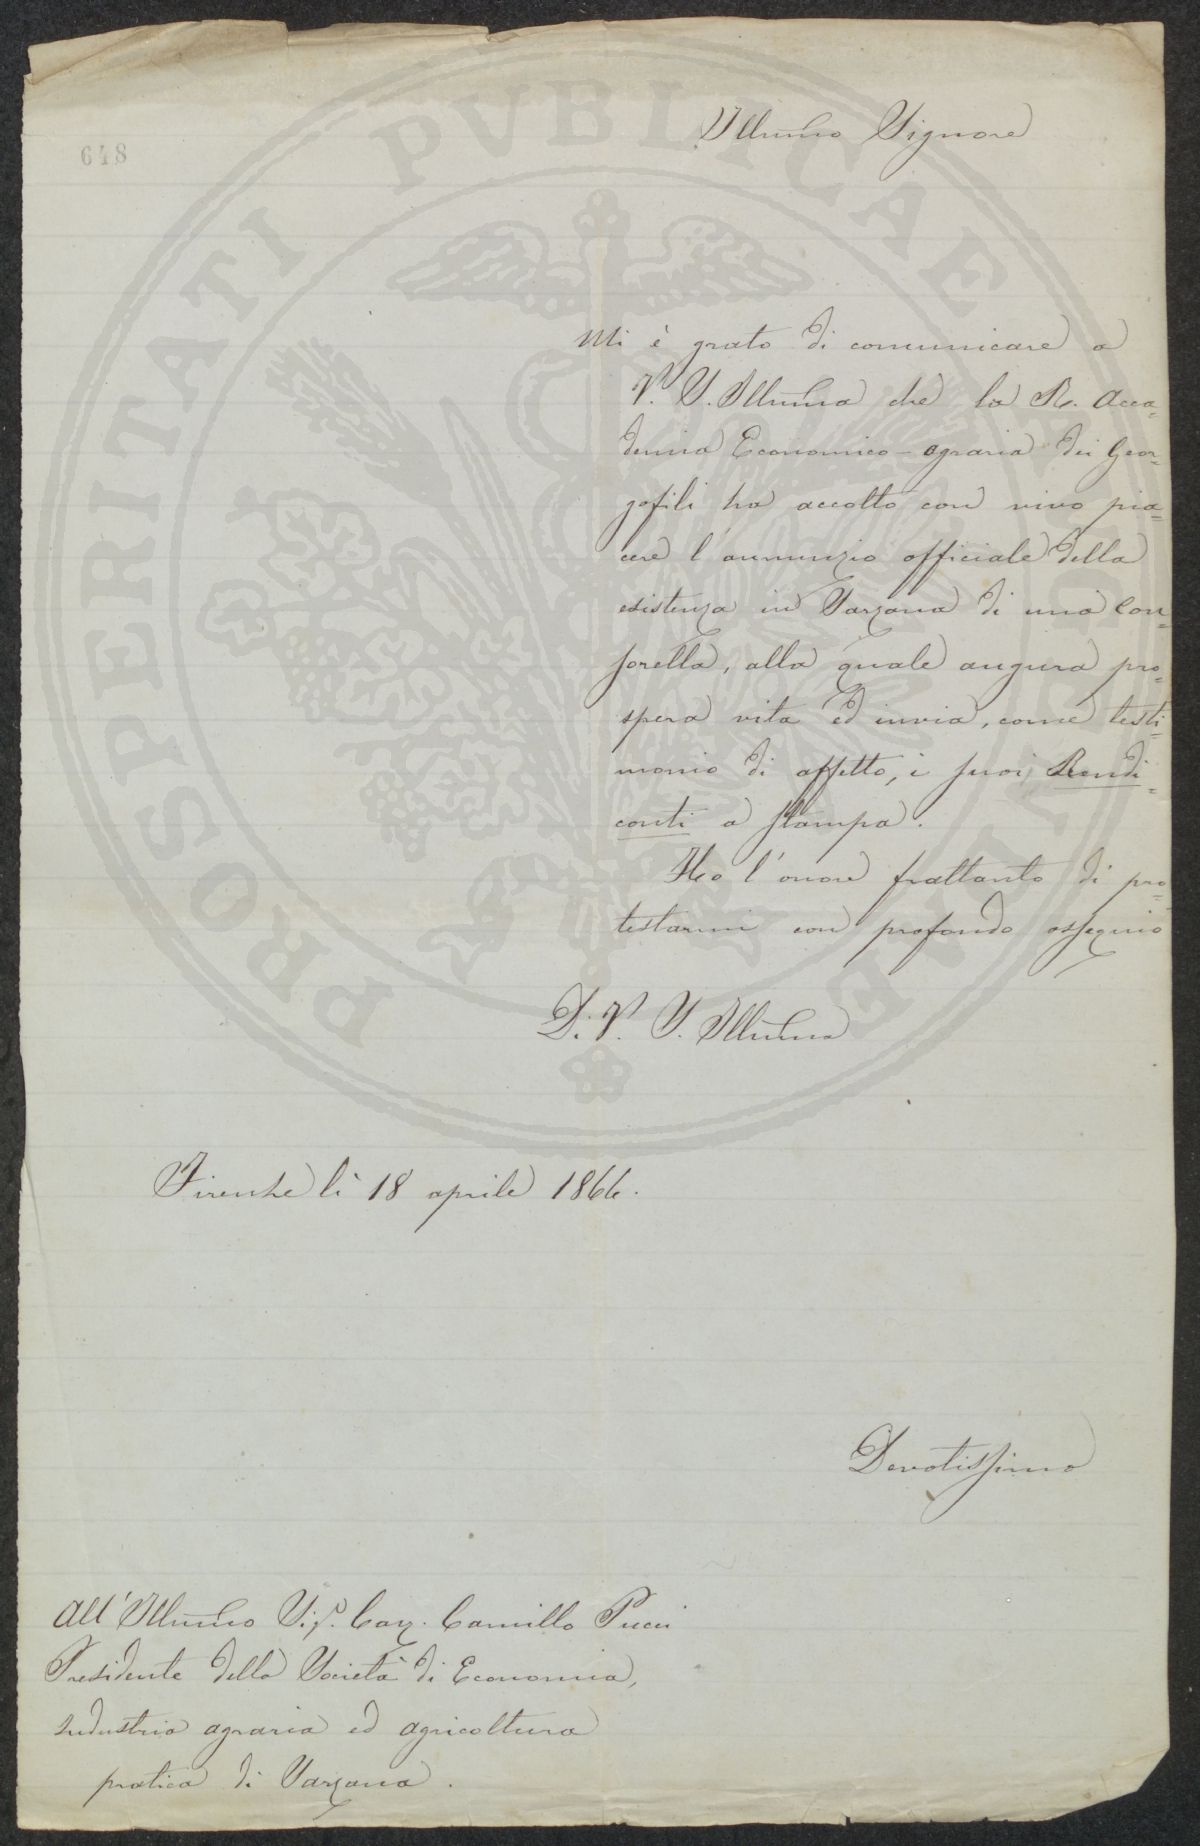 648
Illmo Signore
Mi è grato di comunicare a
V. S. Illma che la R. Acca=
demia Economico-agraria dei Geor=
gofili ha accolto con vivo pia=
cere l'annunzio officiale della
esistenza in Sarzana di una Con=
sorella, alla quale augura pro=
spera vita ed invia, come testi=
monio di affetto, i suoi Rendi=
conti a stampa.
Ho l'onore frattanto di pro=
testarmi con profondo ossequio
D. V. S. Illma
Firenze li 18 aprile 1866.
Devotissimo
All'Illmo Sigr. Cav. Camillo Pucci
Presidente della Società di Economia,
Industria agraria ed agricoltura
pratica di Sarzana.
PROSPERITATI PVBLICAE